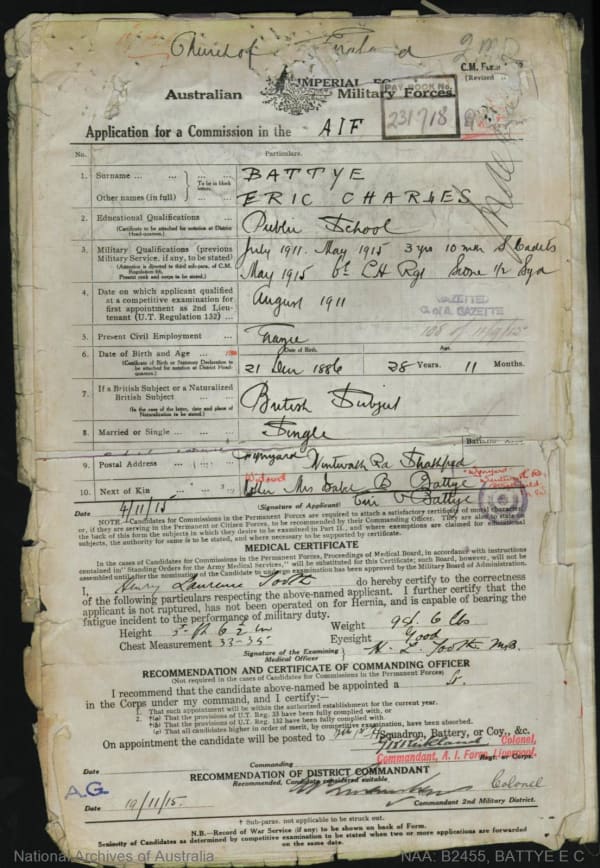 Church of England
C.M. Form
(Revised
IMPERIAL
Australian Military Forces.
PAY BOOK No.
231718
Application for a Commission in the AIF
No. Particulars.
1. Surname ... BATTYE
To be in block letters.
Other names (in full) ERIC CHARLES
2. Educational Qualifications ... Public School
(Certificate to be attached for notation at District Head-quarters.)
3. Military Qualifications (previous Military Service, if any, to be stated) July 1911. May 1915 3 yrs 10 mos S Cadets
(Attention is directed to third sub-para. of C.M. Regulation
May 1915 6th LH Rgt
4. Date on which applicant qualified at a competitive examination for first appointment as 2nd Lieutenant (U.T. Regulation 132) ... August 1911
GAZETTED
C of A GAZETTE
5. Present Civil Employment ...
6. Date of Birth and Age ...
Date of Birth. Age.
(Certificate of Birth or Statutory Declaration to be attached for notation at District Head-quarters.)
21 Dec 1886 28 Years. 11 Months.
7. If a British Subject or a Naturalized British Subject ... British Subject
(In the case of the latter, date and place of Naturalization to be stated.)
8. Married or Single ... Single
9. Postal Address ... Wentworth Rd Strathfield
10. Next of Kin Widowed Mother Mrs Isabel B Battye
4/11/15 (Signature of Applicant) Eric C Battye
NOTE.—Candidates for Commissions in the Permanent Forces are required to attach a satisfactory certificate of moral character,
or, if they are serving in the Permanent or Citizen Forces, to be recommended by their Commanding Officer. They are also to state on
the back of this form the subjects in which they desire to be examined in Part II., and where exemptions are claimed for educational
subjects, the authority for same is to be stated, and where necessary to be supported by certificate.
MEDICAL CERTIFICATE
(In the cases of Candidates for Commissions in the Permanent Forces, Proceedings of Medical Board, in accordance with instructions
contained in "Standing Orders for the Army Medical Services," will be substituted for this Certificate; such Board, however, will not be
assembled until the nomination of the Candidate to undergo examination has been approved by the Military Board of Administration.
I, Henry Laurence Tooth do hereby certify to the correctness
of the following particulars respecting the above-named applicant. I further certify that the
applicant is not ruptured, has not been operated on for Hernia, and is capable of bearing the
fatigue incident to the performance of military duty.
Height 5 ft 6½ in Weight 9st. 6 lbs
Chest Measurement 33-35 Eyesight Good
Signature of the Examining Medical Officer H. L. Tooth M.B.
RECOMMENDATION AND CERTIFICATE OF COMMANDING OFFICER
(Not required in the cases of Candidates for Commissions in the Permanent Forces)
I recommend that the candidate above-named be appointed a
in the Corps under my command, and I certify:—
1. That such appointment will be within the authorized establishment for the current year.
2. †(a) That the provisions of U.T. Reg. 35 have been fully complied with, or
†(b) That the provisions of U.T. Reg. 132 have been fully complied with.
(c) That all candidates higher in order of merit, by competitive examination, have been absorbed.
On appointment the candidate will be posted to Squadron, Battery, or Coy., &c.
Colonel,
Commandant, A. I. Force, Liverpool.
Date Commanding Regt. or Corps.
RECOMMENDATION OF DISTRICT COMMANDANT
Recommended, Candidate considered suitable.
A.G.
Colonel
Date 19/11/15. Commandant 2nd Military District.
† Sub-paras. not applicable to be struck out.
N.B.—Record of War Service (if any) to be shown on back of Form.
Seniority of Candidates as determined by competitive examination to be stated when two or more applications are forwarded
on the same date.
National Archives of Australia NAA: B2455, BATTYE E C